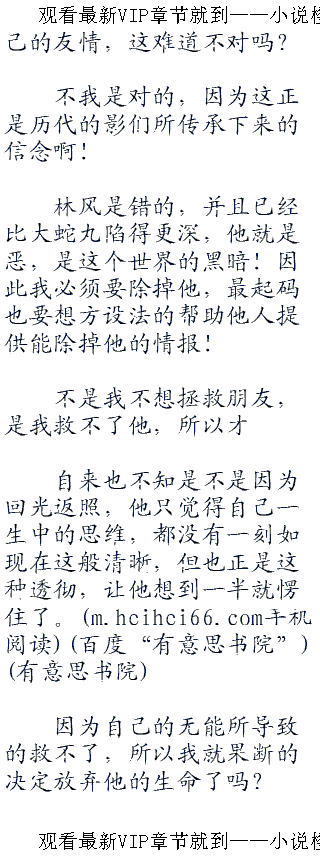 观看最新VIP章节就到——小说楼
己的友情，这难道不对吗？
不我是对的，因为这正
是历代的影们所传承下来的
信念啊！
林风是错的，并且已经
比大蛇丸陷得更深，他就是
恶，是这个世界的黑暗！因
此我必须要除掉他，最起码
也要想方设法的帮助他人提
供能除掉他的情报！
不是我不想拯救朋友，
是我救不了他，所以才
自来也不知是不是因为
回光返照，他只觉得自己一
生中的思维，都没有一刻如
现在这般清晰，但也正是这
种透彻，让他想到一半就愣
住了。(m.hcihci66.com手机
阅读)(百度“有意思书院”)
(有意思书院)
因为自己的无能所导致
的救不了，所以我就果断的
决定放弃他的生命了吗？
观看最新VIP章节就到——小说楼